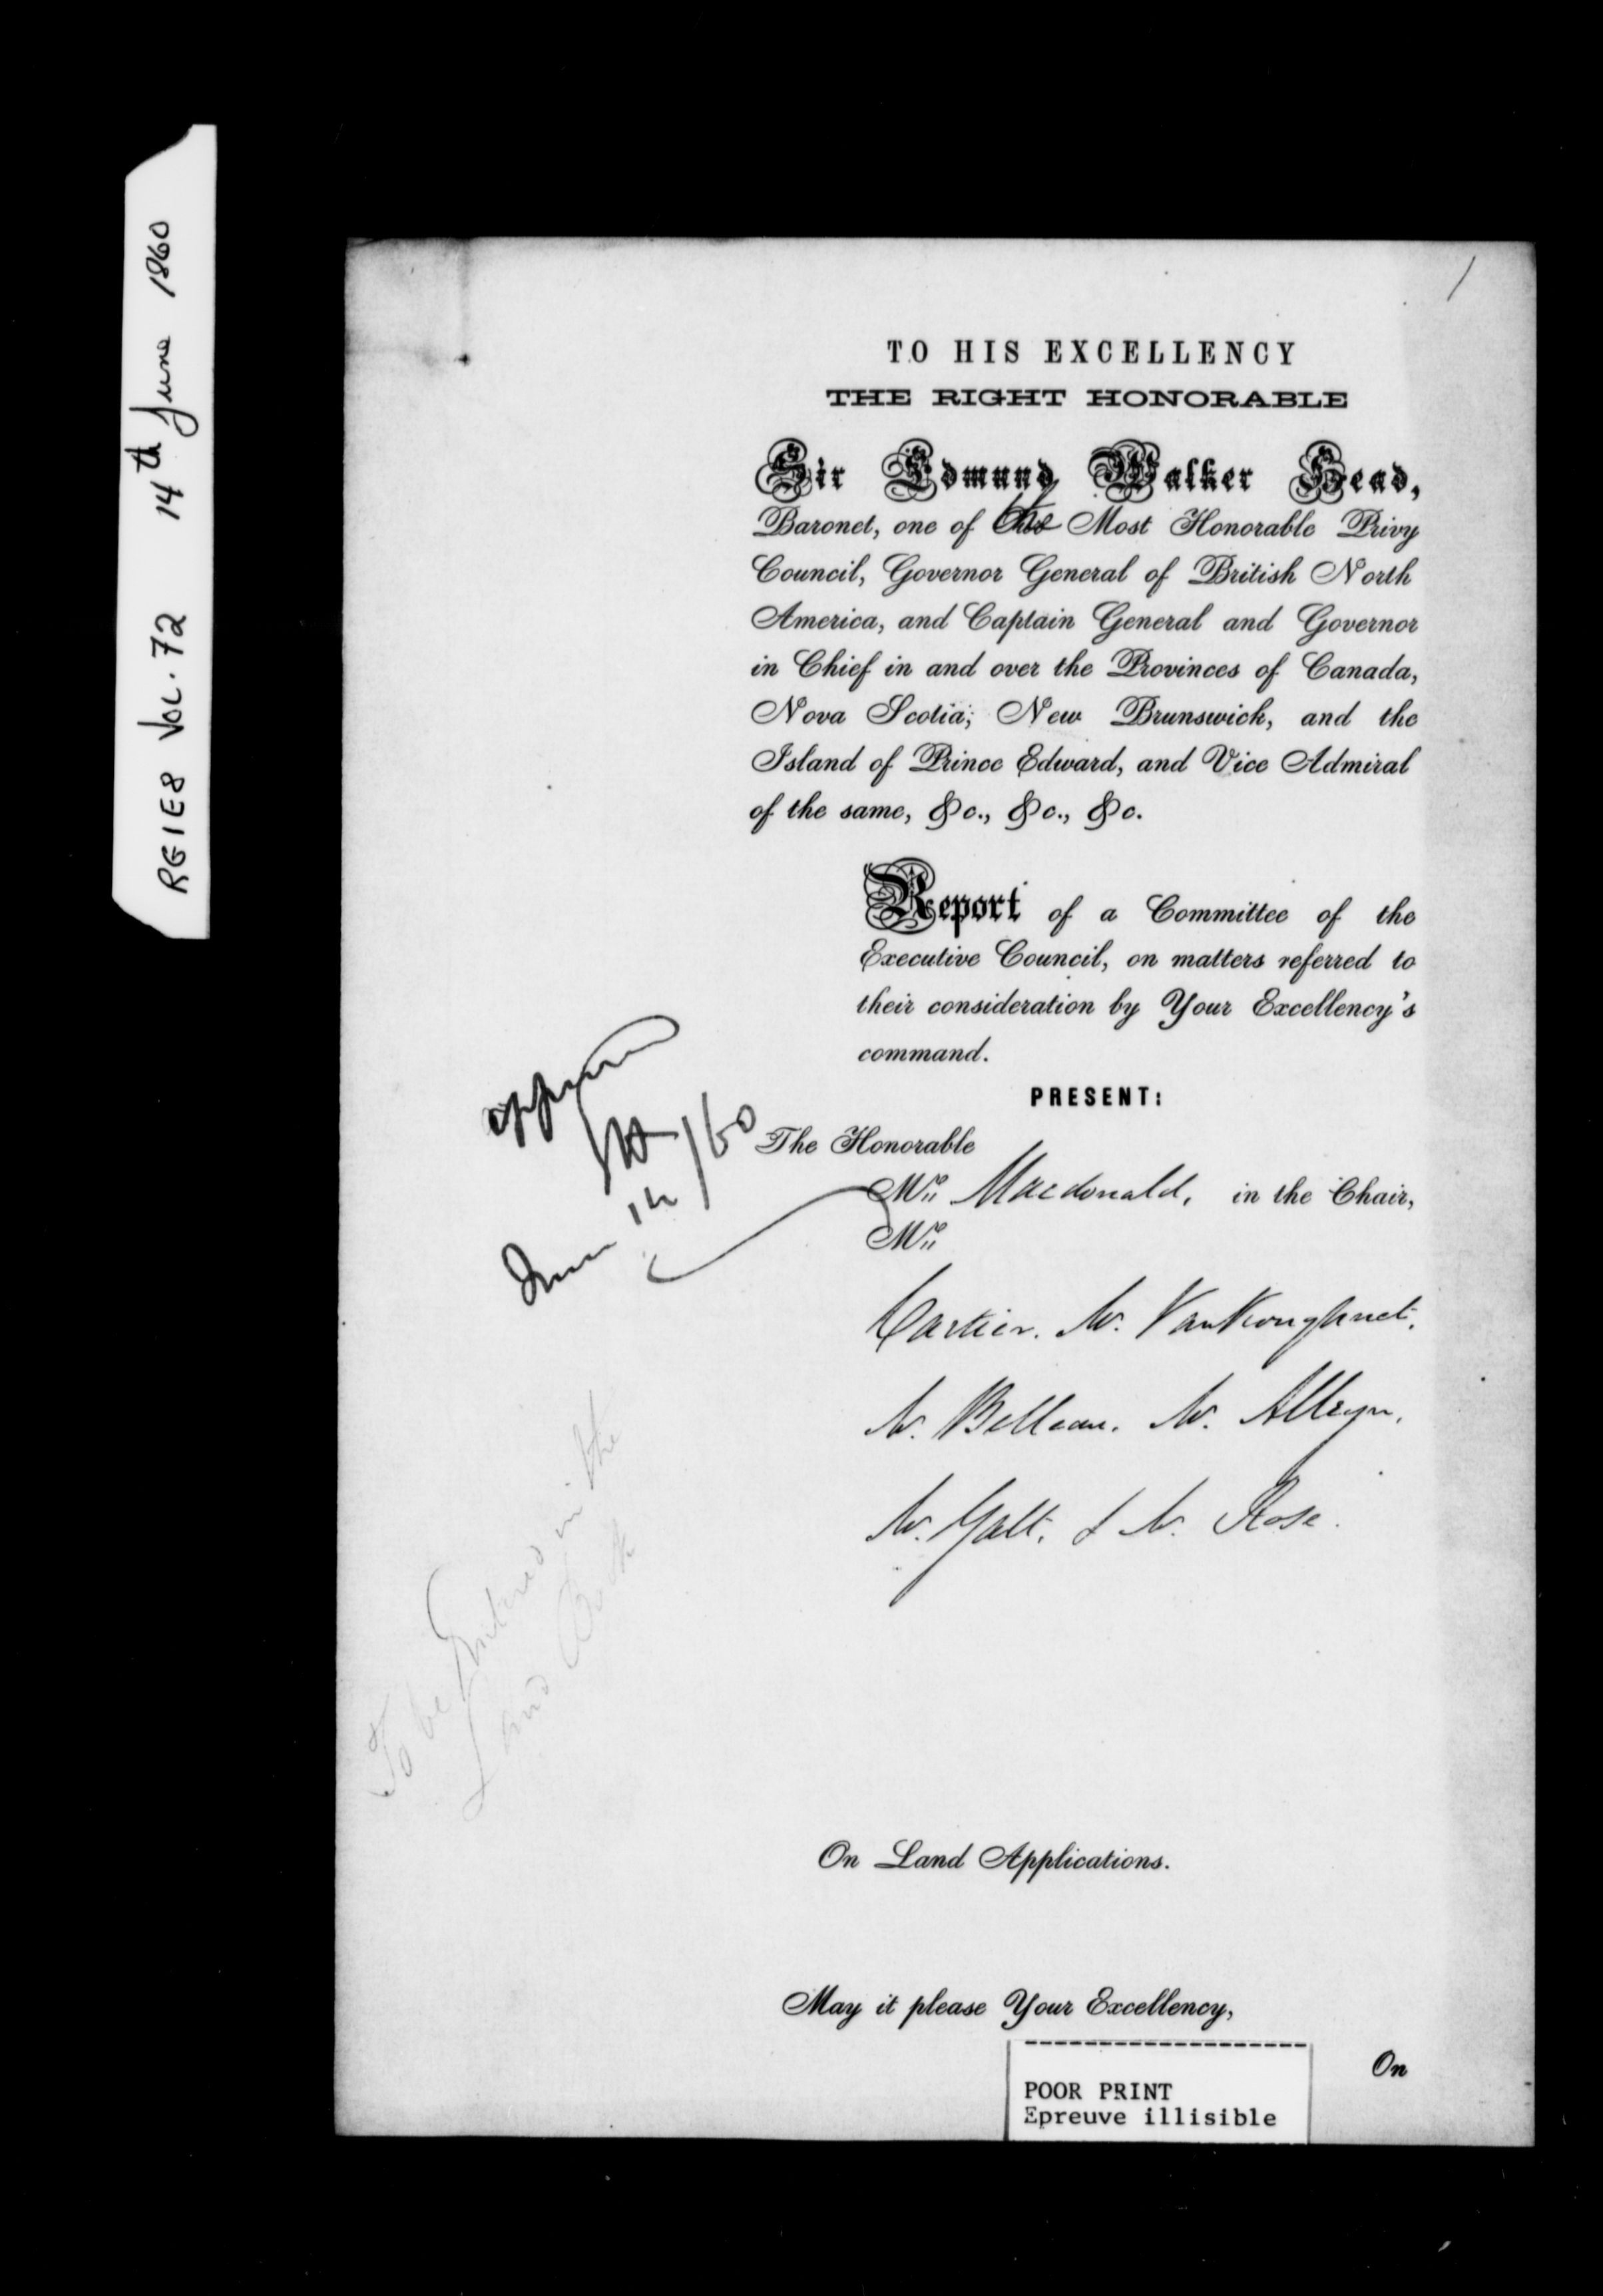 RG1E8 VOL. 72 14th June 1860
1
TO HIS EXCELLENCY
THE RIGHT HONORABLE
Sir Edmund Walker Head,
Baronet, one of the Most Honorable Privy
Council, Governor General of British North
America, and Captain General and Governor
in Chief in and over the Provinces of Canada,
Nova Scotia, New Brunswick, and the
Island of Prince Edward, and Vice Admiral
of the same, &c., &c., &c.
Report of a Committee of the
Executive Council, on matters referred to
their consideration by Your Excellency's
command.
PRESENT:
approved
June 14 /60
The Honorable
Mr. Macdonald, in the Chair,
Mr.
Cartier. Mr. VanKoughnet.
Mr. Belleau. Mr. Alleyn.
Mr. Galt. & Mr. Rose.
To be Entered in the
Land Book
On Land Applications.
May it please Your Excellency,
On
POOR PRINT
Epreuve illisible